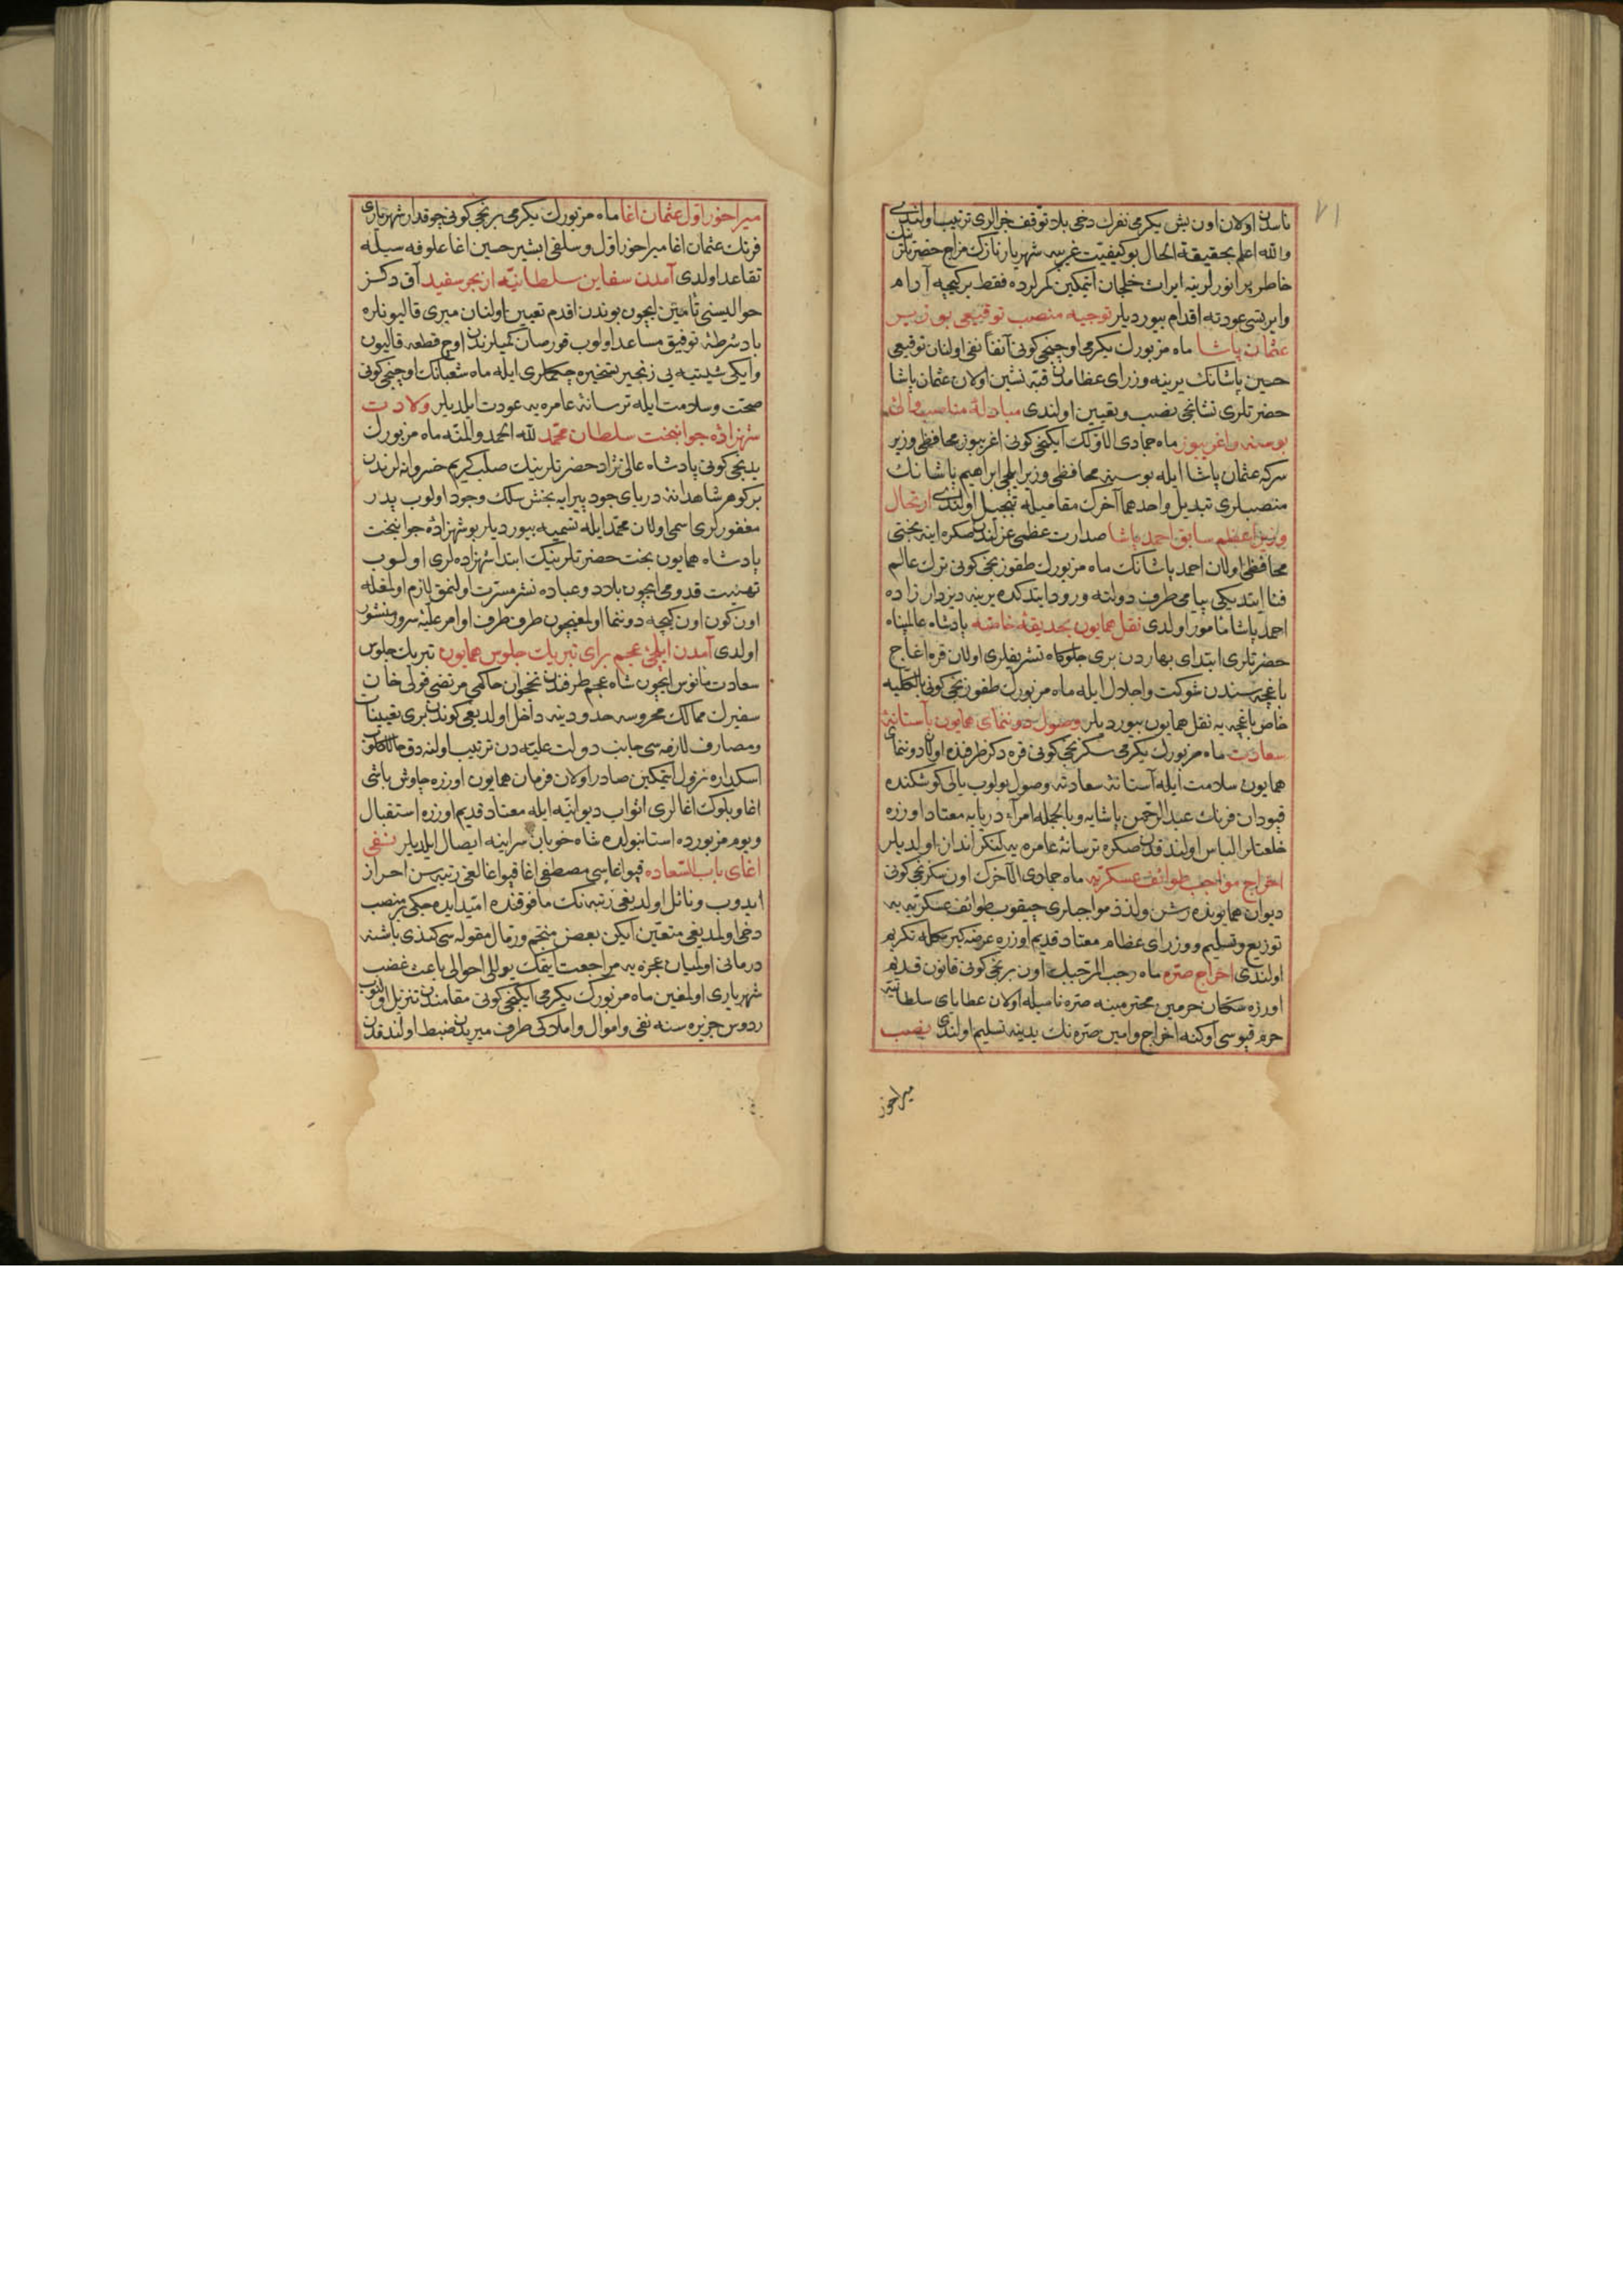 ٧١
ناسدن اولان اون بش یكرمی نفرك دخی بلا توقف جزالری ترتیب اولندی
والله اعلم بحقیقة الحال بو كیفیت غریبه شهریار نازك مزاج حضرتلرینك
خاطر پر انورلرینه ایراث خلجان ایتمكین كمرلرده فقط بر كیجه آرام
وایرتسی عودته اقدام بیوردیلر توجیه منصب توقیعی بوزیر
عثمان پاشا ماه مزبورك یكرمی اوچنجی كونی آنفا نفی اولنان توقیعی
حسین پاشانك یرینه وزرای عظامدن قبه نشین اولان عثمان پاشا
حضرتلری نشانجی نصب وتعیین اولندی مبادلهٔ مناصب والئ
بوسنه واغریبوز ماه جمادی الاولك ایكنجی كونی اغریبوز محافظی وزیر
سركه عثمان پاشا ایله بوسنه محافظی وزیر ایلچی ابراهیم پاشانك
منصبلری تبدیل واحدهما آخرك مقامیله تبجیل اولندی ارتحال
وزیر اعظم سابق احمد پاشا صدارت عظمی عزلندن صكره اینه بختی
محافظی اولان احمد پاشانك ماه مزبورك طقوزنجی كونی ترك عالم
فنا ایتدیكی پیامی طرف دولته ورود ایتدكده یرینه دیزدار زاده
احمد پاشا مأمور اولدی نقل همایون بحدیقهٔ خاصه پادشاه عالمپناه
حضرتلری ابتدای بهاردن بری جلوكاه تشریفلری اولان قره اغاج
باغچه سندن شوكت واجلال ایله ماه مزبورك طقوزنجی كونی بالكلیه
خاص باغچه یه نقل همایون بیوردیلر وصول دوننمای همایون بآستانهٔ
سعادت ماه مزبورك یكرمی سكزنجی كونی قره دكز طرفنده اولان دوننمای
همایون سلامت ایله آستانهٔ سعادته وصول بولوب یالی كوشكنده
قپودان فرمان عبدالرحمن پاشایه وبالجمله امراء دریایه معتاد اوزره
خلعتلر الباس اولندقدن صكره ترسانهٔ عامره یه لنكر انداز اولدیلر
اخراج مواجب طوائف عسكریه ماه جمادی الآخرك اون سكزنجی كونی
دیوان همایونده رشن ولذذ مواجبلری چیقوب طوائف عسكریه یه
توزیع وتسلیم ووزرای عظام معتاد قدیم اوزره عرضه كیرمكله تكریم
اولندی اخراج صره ماه رجب المرجبك اون برنجی كونی قانون قدیم
اوزره سكان حرمین محترمینه صره نامیله اولان عطایای سلطانیه
حرم قپوسی اوكنه اخراج وامین صره نك یدینه تسلیم اولندی نصب
میراخور
میراخور اول عثمان اغا ماه مزبورك یكرمی برنجی كونی چوقدار شهریاری
فرنك عثمان اغا میراخور اول وسلفی ابشیر حسین اغا علوفه سیله
تقاعد اولدی آمدن سفاین سلطانیه از بحر سفید آق دكز
حوالیسنی تأمین ایچون بوندن اقدم تعیین اولنان میری قالیونلره
باد شرطهٔ توفیق مساعد اولوب قورصان كمیلرندن اوچ قطعه قالیون
وایكی شیتیه یی زنجیر تسخیره چكملری ایله ماه شعبانك اوچنجی كونی
صحت وسلامت ایله ترسانهٔ عامره یه عودت ایلدیلر ولادت
شهزادهٔ جوانبخت سلطان محمد لله الحمد والمنه ماه مزبورك
یدنجی كونی پادشاه عالی نژاد حضرتلرینك صلب كریم خسروانه لرندن
بر كوهر شاهدانهٔ دریای جود پیرایه بخش سلك وجود اولوب پدر
مغفورلری اسمی اولان محمد ایله تسمیه بیوردیلر بو شهزادهٔ جوانبخت
پادشاه همایون بخت حضرتلرینك ابتدا شهزاده لری اولوب
تهنیت قدومی ایچون بلاد وعباده نشر مسرت اولنمق لازم اولمغله
اون كون اون كیجه دوننما اولمغیچون طرف طرف اوامر علیه سرور منشور
اولدی آمدن ایلچئ عجم برای تبریك جلوس همایون تبریك جلوس
سعادت مأنوس ایچون شاه عجم طرفندن نخجوان حاكمی مرتضی قولی خان
سفیرك ممالك محروسه حدودینه داخل اولدیغی كوندن بری تعیینات
ومصارف لازمه سی جانب دولت علیه دن ترتیب اولنه رق
اسكداره نزول ایتمكین صادر اولان فرمان همایون اوزره چاوش باشی
اغا وبلوك اغالری اثواب دیوانیه ایله معتاد قدیم اوزره استقبال
ویوم مزبورده استانبولده شاه خوبان سراینه ایصال ایلدیلر نفی
اغای باب السعاده قپو اغاسی مصطفی اغا قپو اغالغی رتبه سن احراز
ایدوب ونائل اولدیغی رتبه نك مافوقنده امید ایده جكی بر منصب
دخی اولمدیغی متعین ایكن بعض منجم ورمال مقوله سی كندی باشنه
درمانی اولمیان عجزه یه مراجعت ایتمك یوللی احوالی باعث غضب
شهریاری اولمغین ماه مزبورك یكرمی ایكنجی كونی مقامندن تنزیل اولنوب
ردوس جزیره سنه نفی واموال واملاكی طرف میریدن ضبط اولندقدن